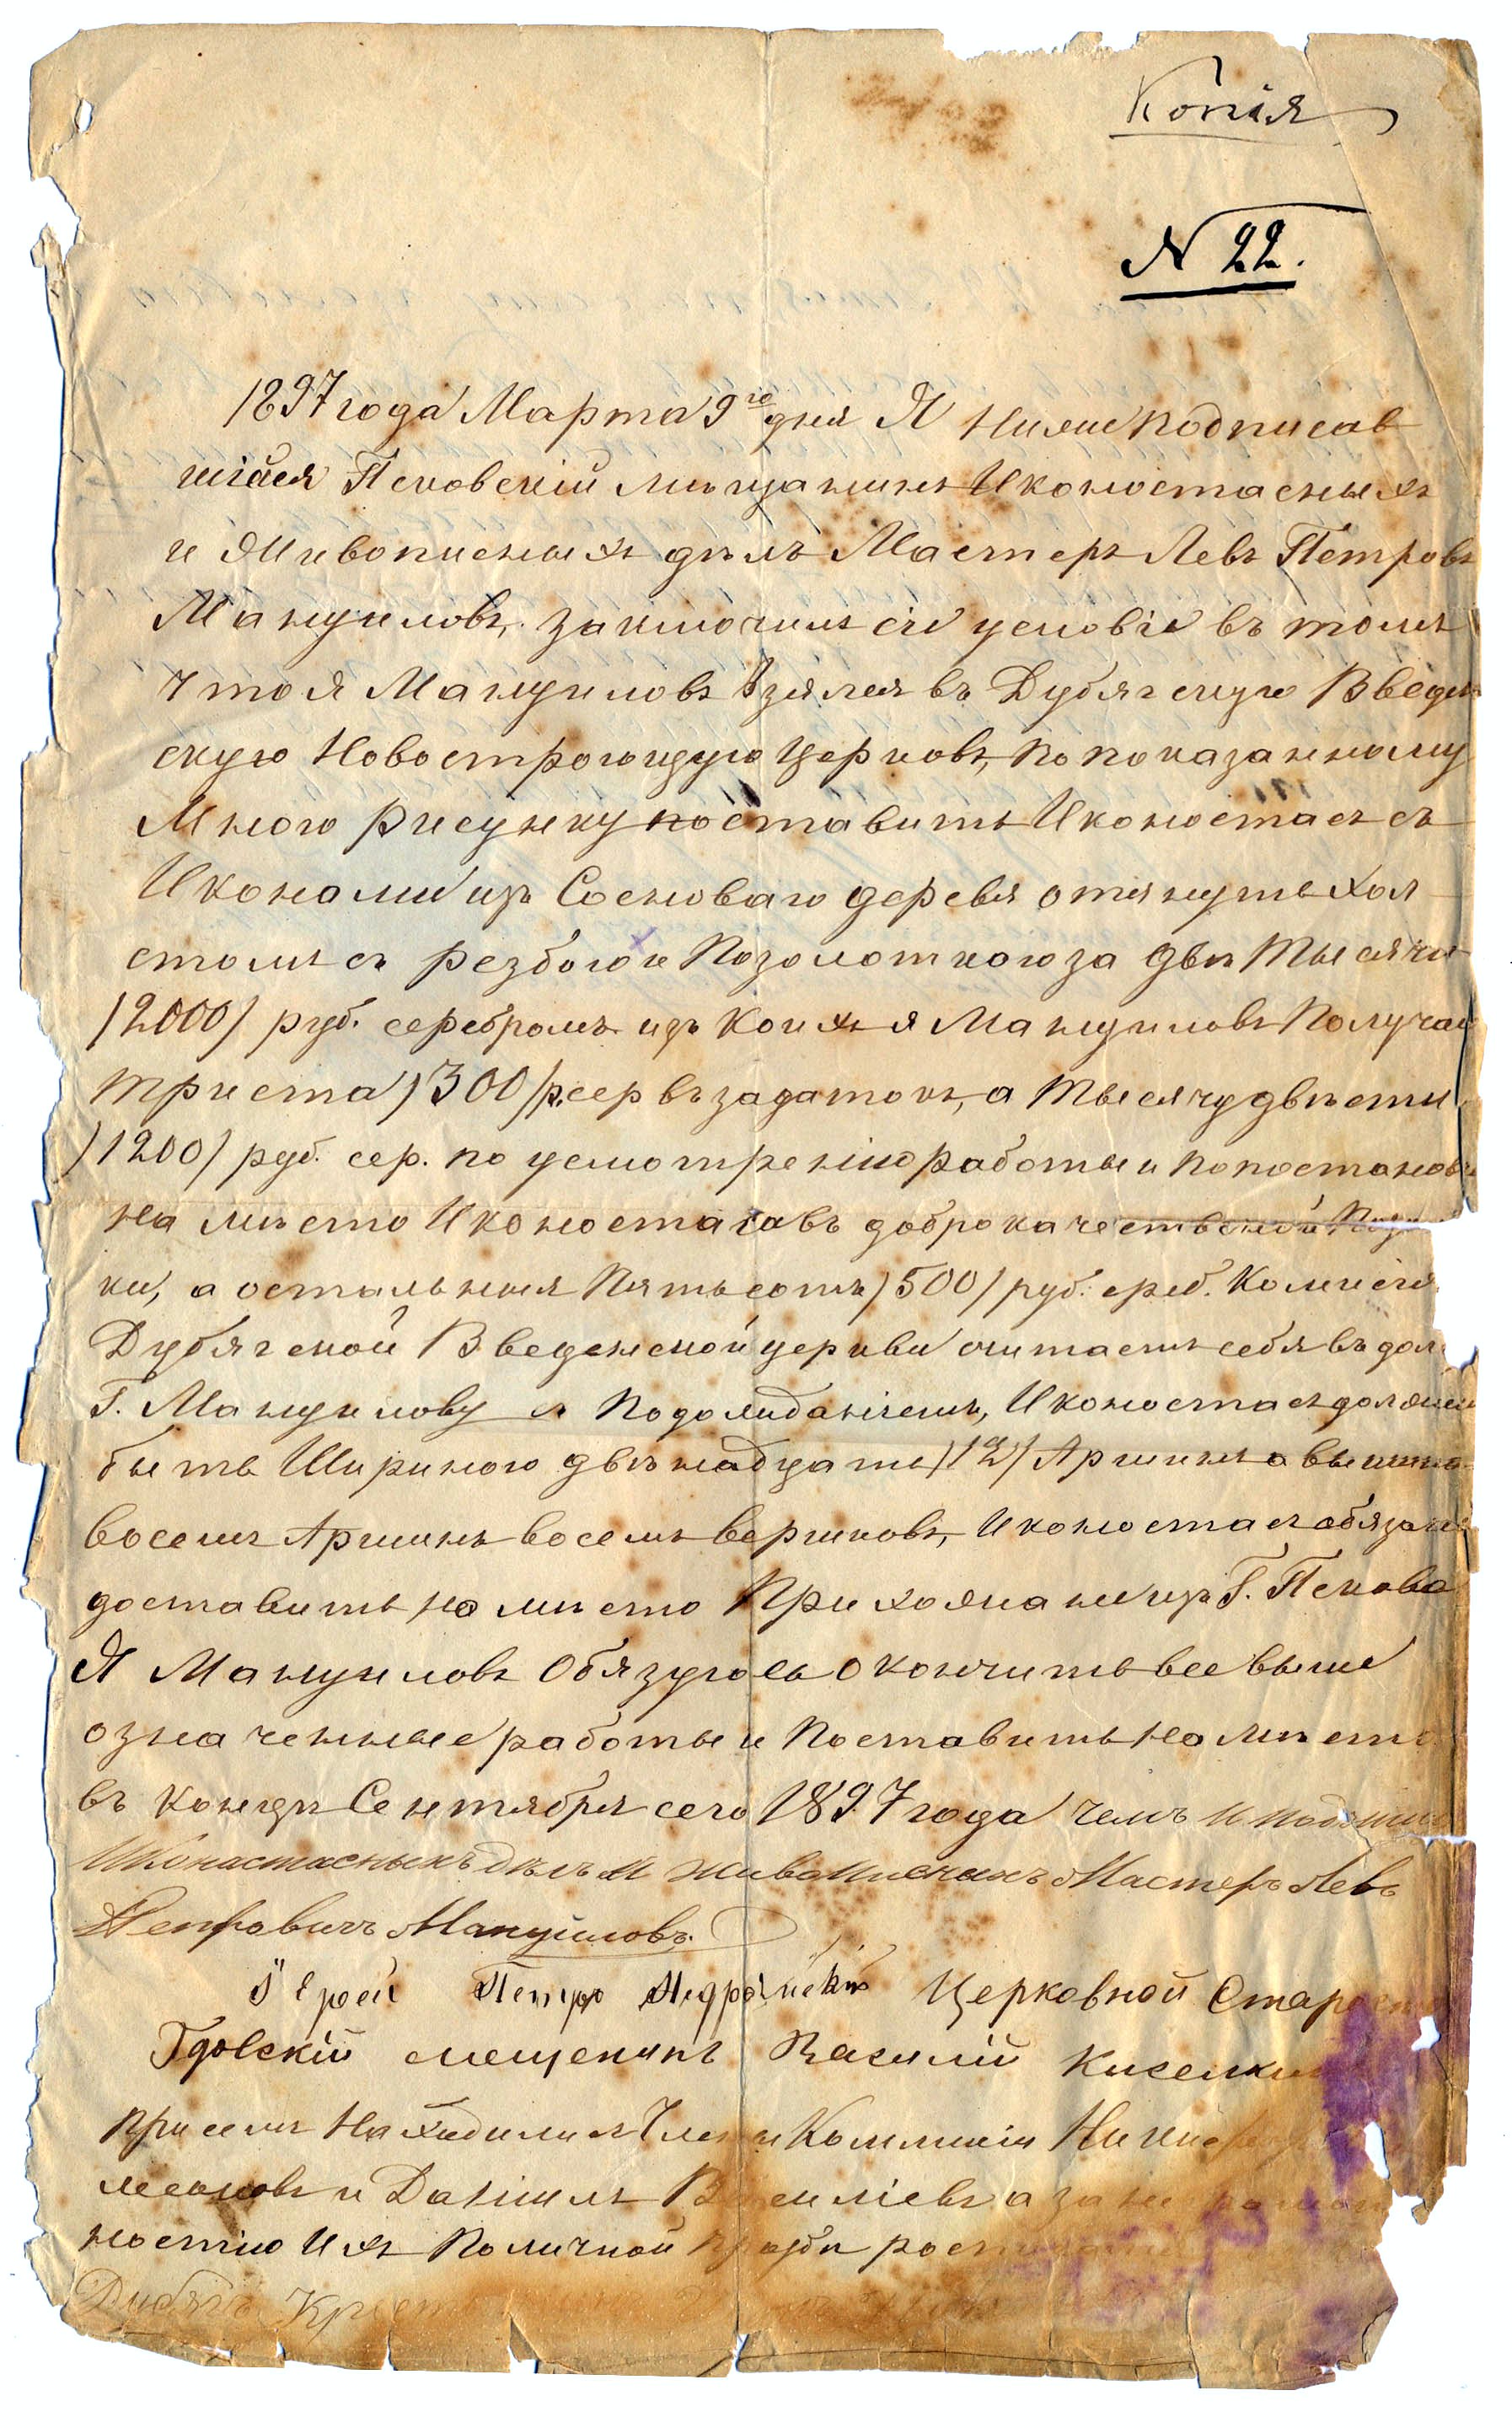 Копія
N 22.
1897 года Марта 9го дня Я Нижеподписав
шійся Псковскій мѣщанинъ Иконостасныхъ
и Живописныхъ дѣлъ Мастеръ Левъ Петровъ
Мануиловъ, заключилъ сіе условіе въ томъ
что я Мануиловъ взялся въ Дубягскую Введен
скую Новострогощую Церковь, по показанному
Мною рисунку поставить Иконостасъ съ
Иконами изъ Сосноваго деревя отянуть хол
стомъ съ резбою и Позолоткою за двѣ Тысячи
/2000/ руб. серебромъ изъ коихъ я Мануиловъ Получаю
триста /300/ р. сер въ задатокъ, а Тысячу двѣсти
/1200/ руб. сер. по усмотренію работы и по постановки
на мѣсто Иконостаса въ доброкачественной
ки, а остальныя Пятьсотъ /500/ руб. среб. Комисія
Дубягской Введенской церкви считаетъ себя въ дол
Г. Мануилову съ Подожиданіемъ, Иконостасъ долженъ
быть Шириною двѣнадцать /12/ Аршинъ а вышина
восемь Аршинъ восемь вершковъ, Иконостасъ обязаны
доставить на мѣсто Прихожане изъ Г. Пскова
Я Мануиловъ Обязуюсь Окончить все выше
означенные работы и Поставить на мѣсто
въ концѣ Сентября сего 1897 года чемъ и
Иконастасныхъ дѣлъ и живописныхъ Мастеръ Левъ
Петровичъ Мануиловъ.
Іерей Петръ Церковной Староста
Гдовскій мещенинъ Василій Киселкин
При семъ Находились Члены Коммисіи
и Данiилъ Василіевъ а за не
ностію Ихъ По личной прозбѣ
Дубягъ Крест